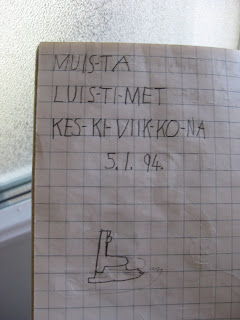 MUIS-TA
LUIS-TI-MET
KES-KI-VIIK-KO-NA
5.1.94.